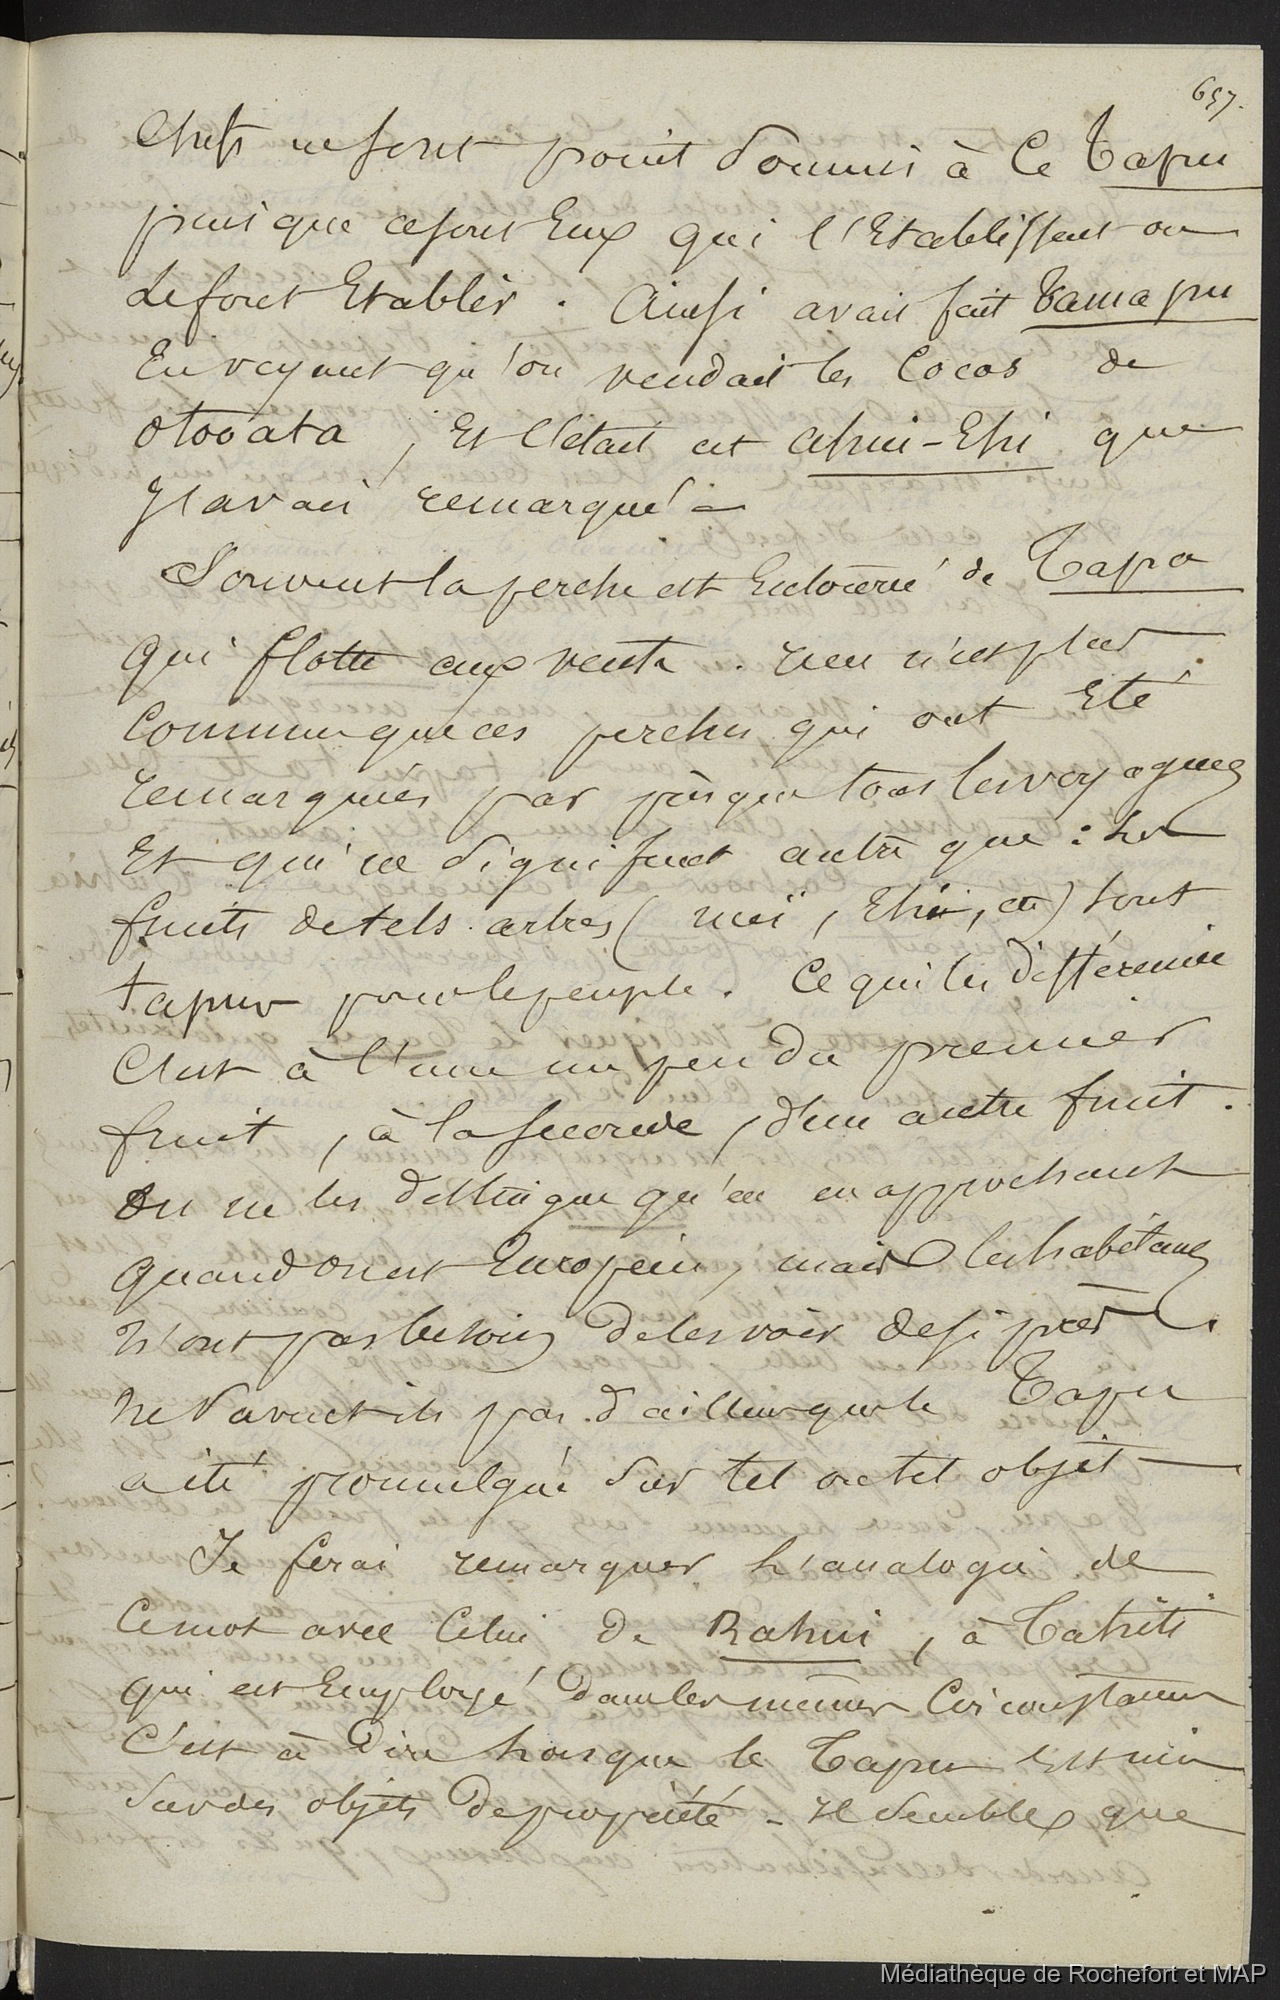 657.
Chefs ne sont point soumis à ce Tapu
puisque ce sont Eux qui l'Etablissent ou
Le font Etablir. Ainsi avait fait Tamapu
En voyant qu'on vendait les Cocos de
otooata, Et C'était cet ahui-Ehi que
j'avais remarqué -
Souvent la perche est Entourée de Tapa
qui flotte aux vents. rien n'est plus
Commun que ces perches qui ont Eté
remarquées par presque tous les voyageurs
Et qui ne signifient autre que : les
fruits de tels arbres (meï, Ehi, etc) sont
tapus pour le peuple. Ce qui les différencie
C'est à l'une un peu du premier
fruit, à la seconde, d'un autre fruit.
On ne les distingue qu'en en approchant
quand on est Européen, mais les habitans
n'ont pas besoin de les voir de si près.
Ne savent-ils pas d'ailleurs que le Tapu
a été promulgué sur tel ou tel objet -
Je ferai remarquer L'analogie de
Ce mot avec Celui de Rahui, à Tahiti
qui est Employé dans les mêmes Circonstances
C'est à Dire Lorsque le Tapu Est mis
Sur des objets de propriété - Il semble que
Médiathèque de Rochefort et MAP